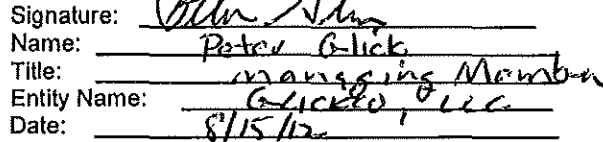 Signature:
Name: Peter Glick
Title: managing Member
Entity Name: Glickco, LLC
Date: 8/15/12